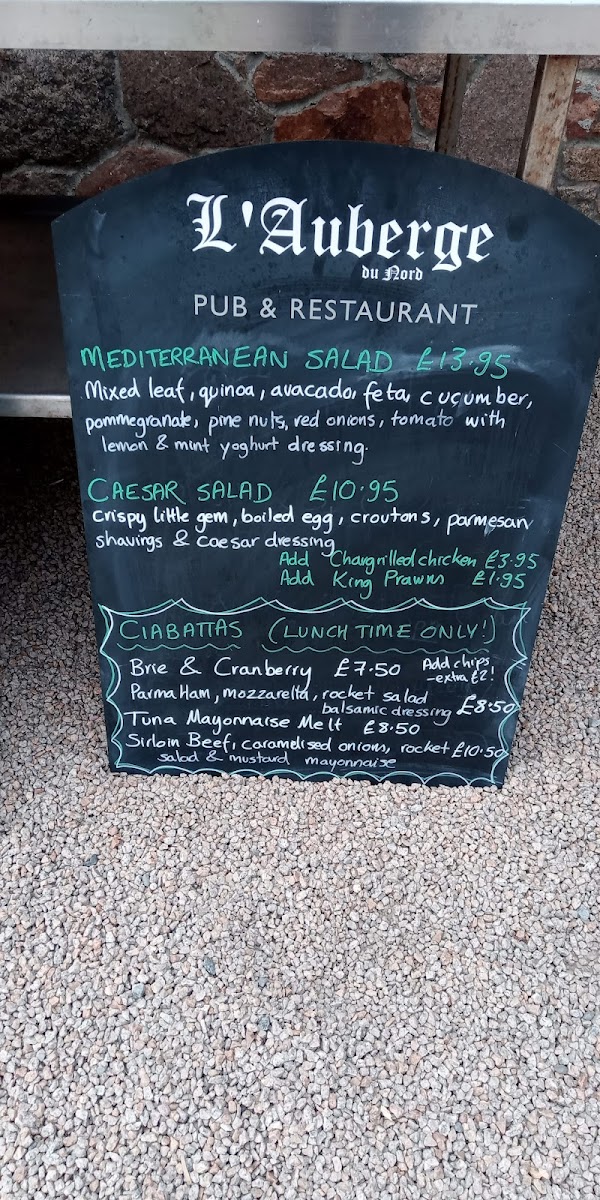 L'Auberge
du Nord
PUB & RESTAURANT
MEDITERRANEAN SALAD £13.95
Mixed leaf, quinoa, avacado, feta, cucumber,
pommegranate, pine nuts, red onions, tomato with
lemon & mint yoghurt dressing.
CAESAR SALAD £10.95
crispy little gem, boiled egg, croutons, parmesan
shavings & caesar dressing
Add Chargrilled chicken £3.95
Add King Prawns £1.95
CIABATTAS (LUNCH TIME ONLY!)
Brie & Cranberry £7.50 Add chips
-extra £2!
Parma Ham, mozzarella, rocket salad
balsamic dressing £8.50
Tuna Mayonnaise Melt £8.50
Sirloin Beef, caramelised onions, rocket £10.50
salad & mustard mayonnaise